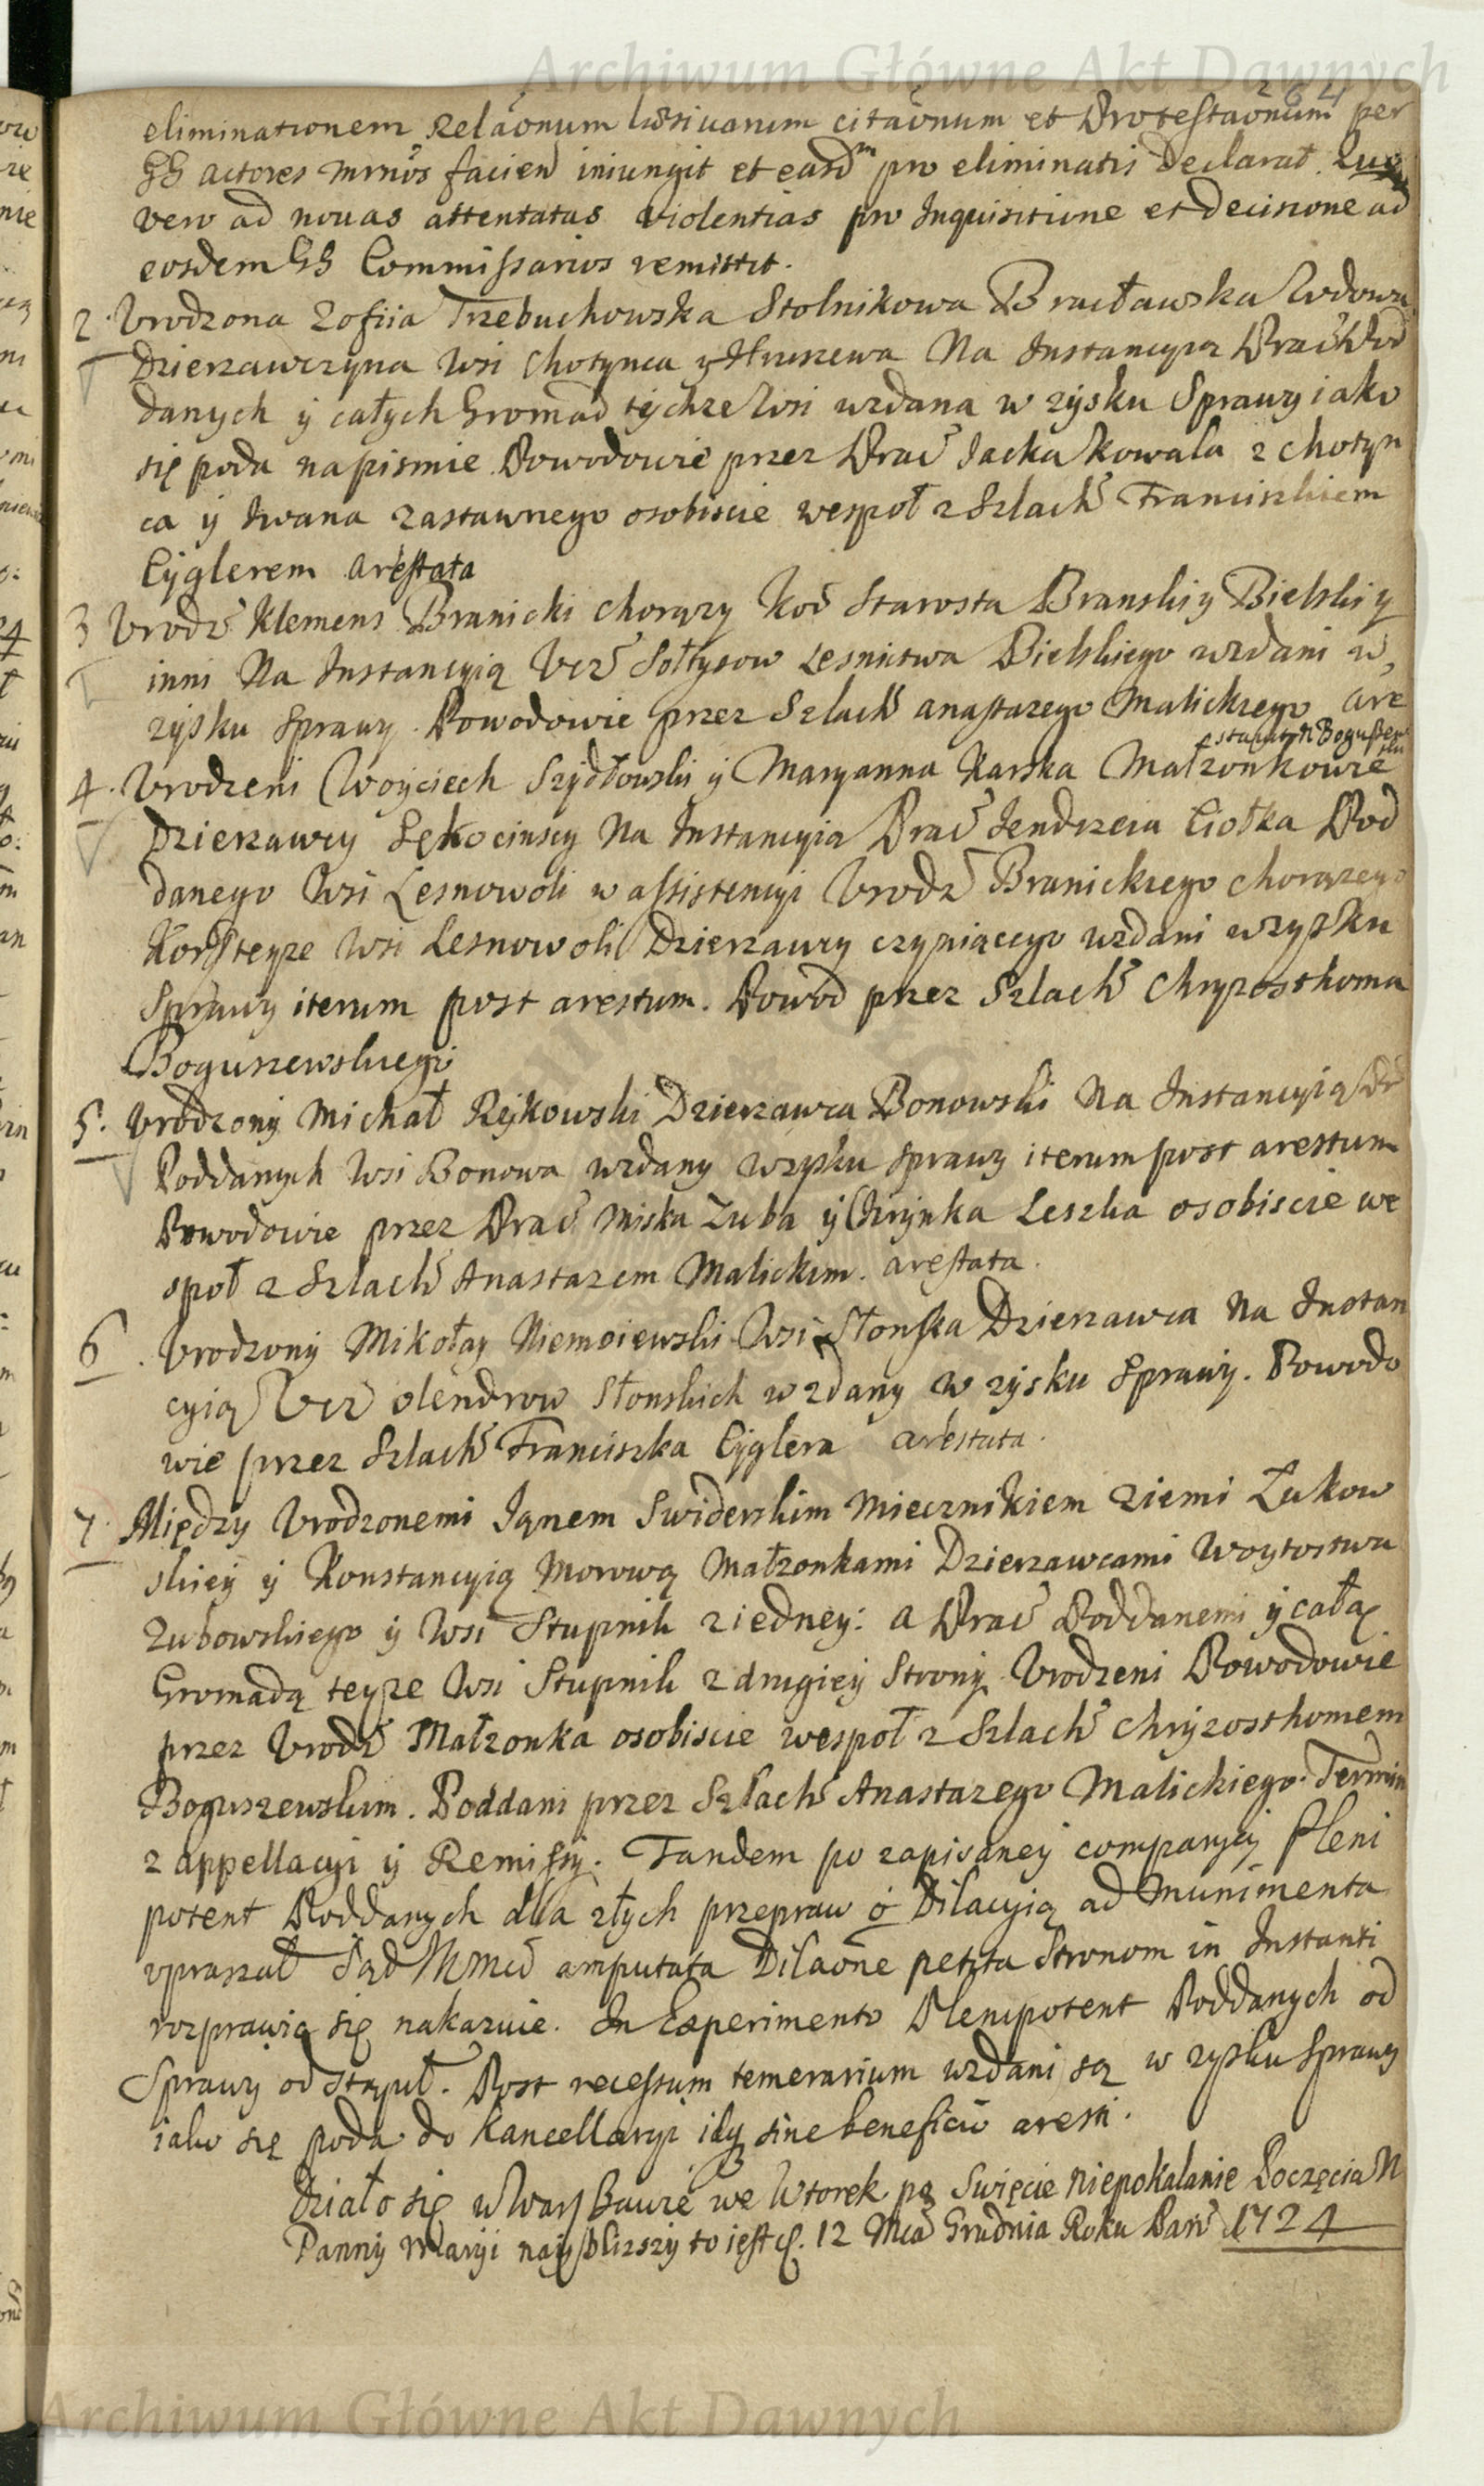 Archiwum Główne Akt Dawnych
264
eliminationem Relaonum citaonum et Protestaonum per
GG actores facien iniungit et easdm pro eliminatis declarat. Quo
vero ad nouas attentatas violentias pro Inquisitione et decisione ad
eosdem GG Commissarios remittit.
2. Urodzona Zofiia Trzebuchowska Stolnikowa Bracławska Wdowa
Dzierzawczyna Wsi Chotynca y Hruszewa Na Instancyią Prac Pod
danych ÿ całych Gromad teÿchze Wsi wzdana w zÿsku Sprawy iako
się poda na pismie. Powodowie przez Prac Jacka Kowala z Chotyn
ca ÿ Iwana Zastawnego osobiscie wespoł z Szlach Franciszkiem
Cÿglerem arestata
3 Urodz Klemens Branicki Chorązy Kor Starosta Branski y Bielski y
inni Na Instancyią Ucz Sołtysow Lesnictwa Bielskiego wzdani w
zysku Sprawy. Powodowie przez Szlach Anastazego Malickiego are
stata N Boguszew
ski
4. Urodzeni Woyciech Szydłowski ÿ Maryanna Karska Małzonkowie
Dzierzawcy Sękocinscy Na Instancyią Prac Jendrzeia Ciołka Pod
danego Wsi Lesnowoli w assistencyi Urodz Branickiego Chorązego
Kor teyze Wsi Lesnowoli Dzierzawcy czyniącego wzdani w zysku
Sprawy iterum post arestum. Powod przez Szlach Chryzosthoma
Boguszewskiego
5. Urodzony Michał Rejkowski Dzierzawca Bonowski Na Instancyią Pr
Poddanych Wsi Bonowa wzdany w zysku Sprawy iterum post arestum
Powodowie przez Prac Miska Zuba ÿ Chrynka Leszka osobiscie we
społ z Szlach Anastazem Malickim. arestata.
6. Urodzony Mikołay Niemoiewski Wsi Słonska Dzierzawca Na Instan
cyią Ucz olendrow Słonskich wzdany w zÿsku Sprawy. Powodo
wie przez Szlach Franciszka Cÿglera arestata.
7. Między Urodzonemi Janem Swiderskim Miecznikiem Ziemi Łukow
skiey ÿ Konstancyią Morową Małzonkami Dzierzawcami Woytostwa
Zubowskiego ÿ Wsi Stupnik z iedney: a Prac Poddanemi ÿ całą
Gromadą teyze Wsi Stupnik z drugiey Strony. Urodzeni Powodowie
przez Urodz Małzonka osobiscie wespoł z Szlach Chrÿzosthomem
Boguszewskim. Poddani przez Szlach Anastazego Malickiego. Termin
z appellacyi ÿ Remissy. Tandem po zapisaney comparycyi Pleni
potent Poddanych dla złych przepraw o Dilacyią ad Munimenta
upraszał Sąd amputata Dilaone petita Stronom in Instanti
rozprawić się nakazuie. In Experimento Plenipotent Poddanych od
Sprawy odstąpił. Post recessum temerarium wzdani są w zysku Sprawy
iako się poda do Kancellaryi idq sine beneficio aresti.
Działo się w Warszawie we Wtorek po Swięcie Niepokalanie Poczęcia N
Panny Maryi nayblizszy to iest d. 12 Mca Grudnia Roku Pans 1724
Archiwum Główne Akt Dawnych